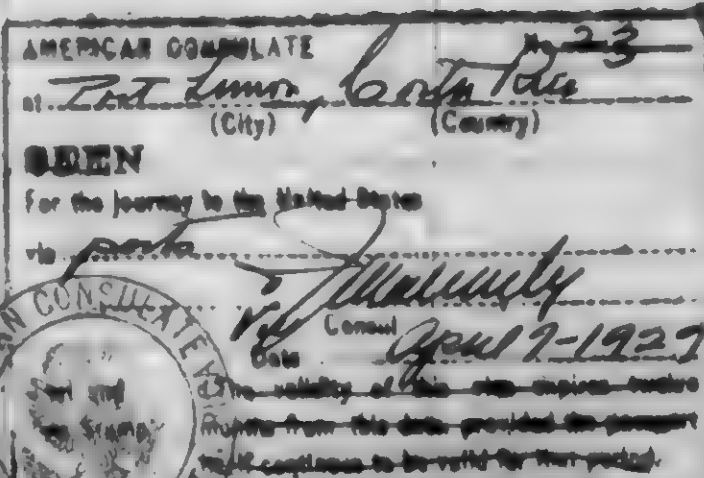 AMERICAN CONSULATE No. 23
at Port Limon, Costa Rica
(City) (Country)
SEEN
For the journey to the United States
via ports
Consul
Date April 7-1927
AN CONSULATE
The validity of this visa expires twelve
months from this date provided the passport
continues to be valid for that period.